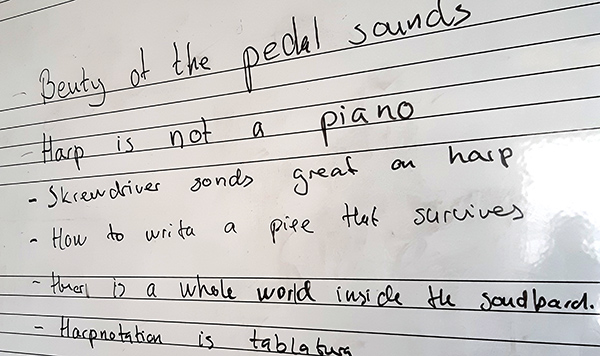 - Beuty of the pedal sounds
- Harp is not a piano
- Skrewdriver sonds great on harp
- How to writa a piee that survives
- is a whole world inside the soudboard.
- Harpnotation is tablatura